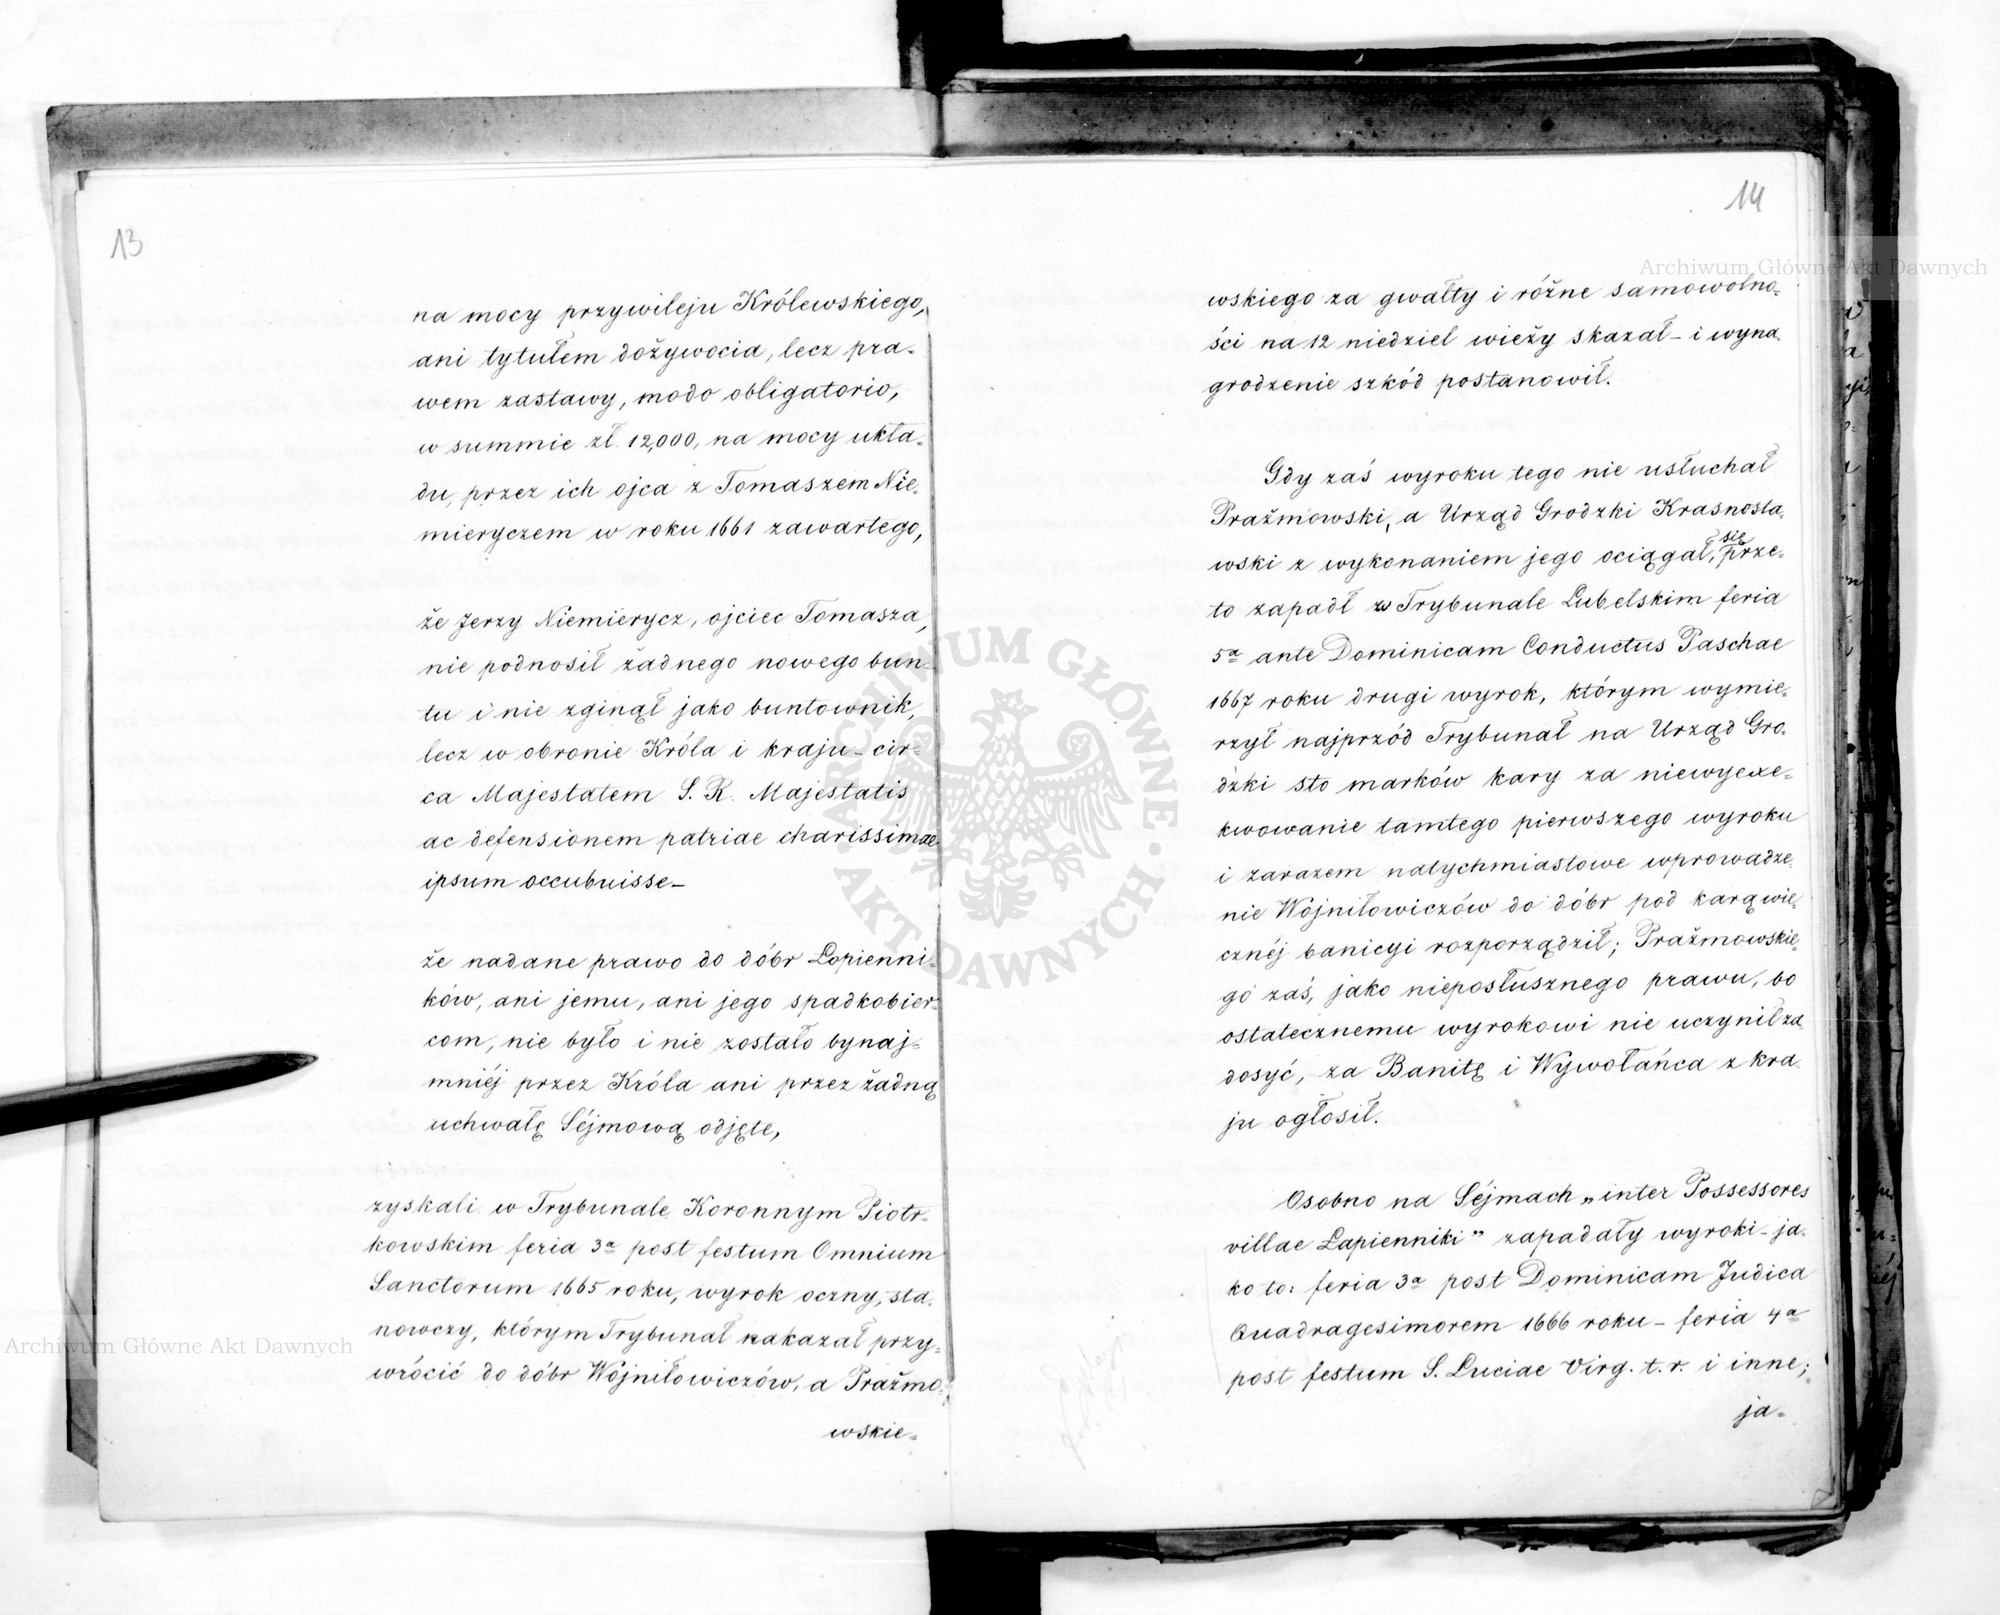 13
na mocy przywileju Królewskiego,
ani tytułem dožywocia, lecz pra=
wem zastawy, modo obligatorio,
w summie zł. 12,000, na mocy ukła=
du, przez ich ojca z Tomaszem Nie=
mieryczem w roku 1661 zawartego,
že Jerzy Niemierycz, ojciec Tomasza,
nie podnosił žadnego nowego bun=
tu i nie zginął jako buntownik,
lecz w obronie Króla i kraju – cir=
ca Majestatem S. R. Majestatis
ac defensionem patriae charissimae
ipsum occubuisse –
že nadane prawo do dóbr Łopienni=
ków, ani jemu, ani jego spadkobier=
com, nie było i nie zostało bynaj=
mniéj przez Króla ani przez žadną
uchwałę Séjmową odjęte,
zyskali w Trybunale Koronnym Piotr=
kowskim feria 3ª post festum Omnium
Sanctorum 1665 roku, wyrok oczny, sta=
nowczy, którym Trybunał nakazał przy=
wrócić do dóbr Wojniłowiczów, a Pražmo=
wskie=
14
wskiego za gwałty i róžne samowolno=
ści na 12 niedziel wiežy skazał – i wyna=
grodzenie szkód postanowił.
Gdy zaś wyroku tego nie usłuchał
Pražmowski, a Urząd Grodzki Krasnosta=
wski z wykonaniem jego ociągał się, prze=
to zapadł w Trybunale Lubelskim feria
5ª ante Dominicam Conductus Paschae
1667 roku drugi wyrok, którym wymie=
rzył najprzód Trybunał na Urząd Gro=
dzki sto marków kary za niewyexe=
kwowanie tamtego pierwszego wyroku
i zarazem natychmiastowe wprowadze=
nie Wojniłowiczów do dóbr pod karą wie=
cznéj banicyi rozporządził; Pražmowskie=
go zaś, jako nieposłusznego prawu, bo
ostatecznemu wyrokowi nie uczynił za=
dosyć, za Banitę i Wywołańca z kra=
ju ogłosił.
Osobno na Séjmach „inter Possessores
villae Łapienniki” zapadały wyroki – ja=
ko to: feria 3ª post Dominicam Judica
Quadragesimorem 1666 roku – feria 4ª
post festum S. Luciae Virg. t. r. i inne;
ja=
Archiwum Główne Akt Dawnych
Archiwum Główne Akt Dawnych
ARCHIWUM GŁÓWNE · AKT DAWNYCH ·